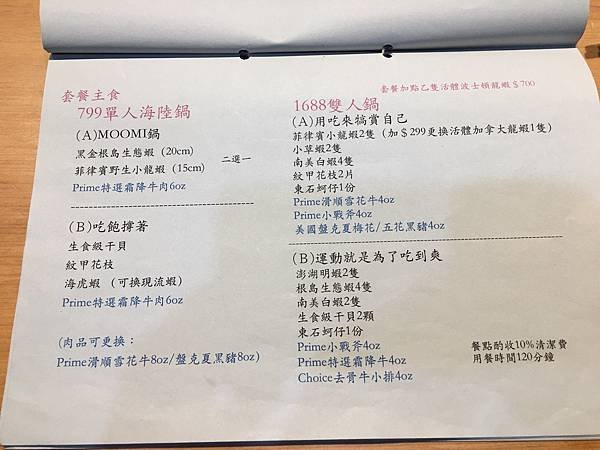 套餐主食
799單人海陸鍋
(A)MOOMI鍋
黑金根島生態蝦 (20cm)
菲律賓野生小龍蝦 (15cm)
二選一
Prime特選霜降牛肉6oz
(B)吃飽撐著
生食級干貝
紋甲花枝
海虎蝦 (可換現流蝦)
Prime特選霜降牛肉6oz
(肉品可更換：
Prime滑順雪花牛8oz/盤克夏黑豬8oz)
套餐加點乙隻活體波士頓龍蝦$700
1688雙人鍋
(A)用吃來犒賞自己
菲律賓小龍蝦2隻 (加$299更換活體加拿大龍蝦1隻)
小草蝦2隻
南美白蝦4隻
紋甲花枝2片
東石蚵仔1份
Prime滑順雪花牛4oz
Prime小戰斧4oz
美國盤克夏梅花/五花黑豬4oz
(B)運動就是為了吃到爽
澎湖明蝦2隻
根島生態蝦4隻
南美白蝦2隻
生食級干貝2顆
東石蚵仔1份
Prime小戰斧4oz
Prime特選霜降牛4oz
Choice去骨牛小排4oz
餐點酌收10%清潔費
用餐時間120分鐘